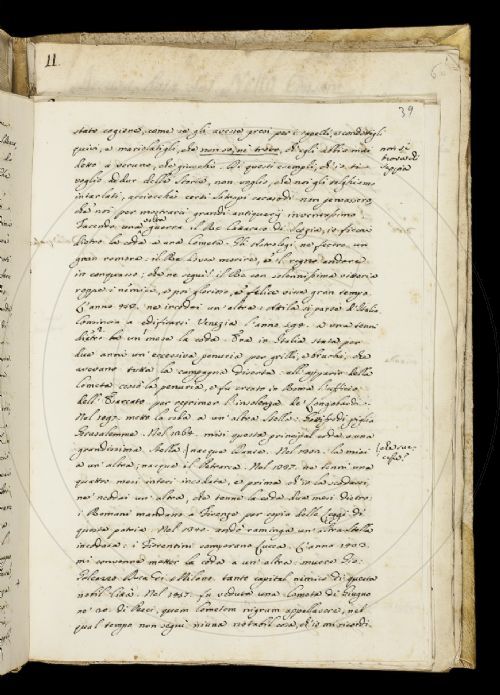 11.
39
stato cagione, come se gli avesse presi per i capelli, secondo gli
quivi, e mariolatigli, che non so, ne trovo, ch'egli abbia mai
detto a veruno, che giuochi. Di questi esempli, ch'io ti
voglio dedur della storia, non voglio, che noi gli vegliamo
intarlati, acciocchè certi satrapi cacasodi non pensassero,
che noi per mostrarci grandi antiquarj
facendo una volta guerra il Re di Scozia, io ficcai
dietro la coda a una Cometa. Gli Astrologi ne fecero un
gran romore: il Re aveva morire, e 'l regno andare
in conquasso; che ne seguì? il Re con solennissima vittoria
roppe i nimici, e poi glorioso, e felice visse gran tempo.
L'anno ne incodai un' altra: Attila si parte d'Italia.
Comincia a edificarsi Venezia l'anno a una tenni
dietro la un mese la coda. Era in Italia stata per
due anni un' eccessiva penuria per grilli, e bruchi, che
avevano tutta la campagna diserta: all'apparir della
Cometa cessò la penuria, e fu creato in Roma l'uffizio
dell' Esarcato per reprimer l'insolenza de' Longobardi.
Nel 1097. metto la coda a un' altra Stella: Gottifredi piglia
Gerusalemme. Nel 1264. misi questa principal coda a una
grandissima Stella: nacque Dante. Nel 1304. la misi
a un' altra; nacque il Petrarca. Nel ne tenni una
quattro mesi interi incodata, e prima ch'io la scodassi,
ne incodai un' altra, che tenne la coda due mesi dietro:
i Romani mandano a Firenze per copia delle Leggi di
questa patria. Nel 1340. andò raminga un' altra stella
incodata: i Fiorentini comperono Lucca. L'anno 1403.
mi convenne metter la coda a un' altra: muore Gio:
Galeazzo Duca di Milano, tanto capital nimico di questa
nobil Città. Nel fu veduta una Cometa di Giugno
ne' dì de' Pesci, quem Cometem nigrum appellavere, nel
qual tempo non seguì niuna notabil cosa, ch'io mi ricordi.
non si
trova di